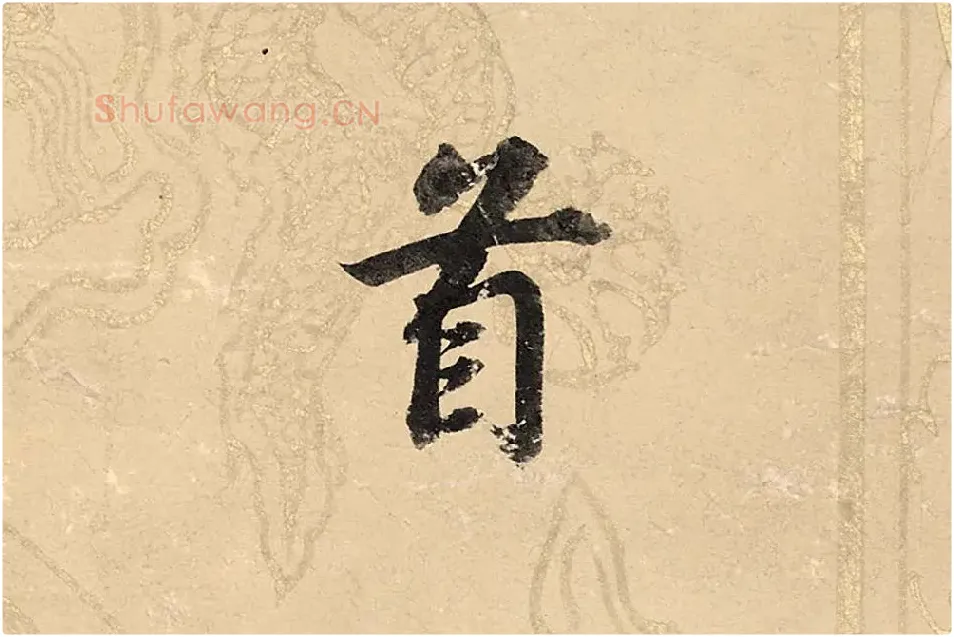 Shufawang.CN
首